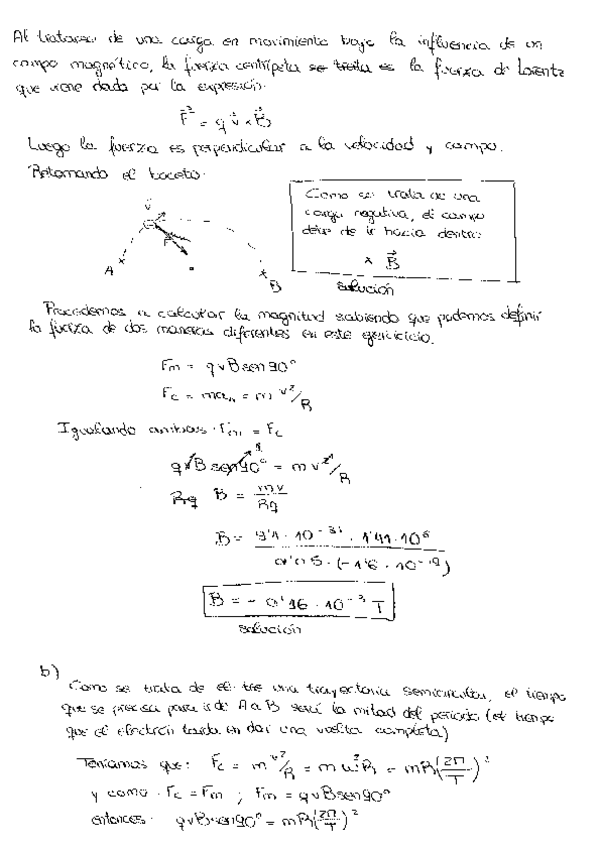 Al tratarse de una carga en movimiento bajo la influencia de un
campo magnético, la fuerza centrípeta se trata es la fuerza de Lorentz
que viene dada por la expresión:
F⃗ = q v⃗ × B⃗
Luego la fuerza es perpendicular a la velocidad y campo.
Retomando el boceto:
v⃗
F
A
B
Como se trata de una
carga negativa, el campo
debe de ir hacia dentro:
× B⃗
solución
Procedemos a calcular la magnitud sabiendo que podemos definir
la fuerza de dos maneras diferentes en este ejercicio.
Fm = qvBsen90º
Fc = man = m v²/R
Igualando ambas: Fm = Fc
1
qvBsen90º = mv²/R
Rq B = mv/Rq
B = 9'1 · 10⁻³¹ · 1'41 · 10⁶ / 0'05 · (-1'6 · 10⁻¹⁹)
B = - 0'16 · 10⁻³ T
solución
b)
Como se trata de una trayectoria semicircular, el tiempo
que se precisa para ir de A a B será la mitad del periodo (el tiempo
que el electrón tarda en dar una vuelta completa)
Teníamos que: Fc = m v²/R = mω²R = mR(2π/T)²
y como Fc = Fm ; Fm = qvBsen90º
entonces: qvBsen90º = mR(2π/T)²